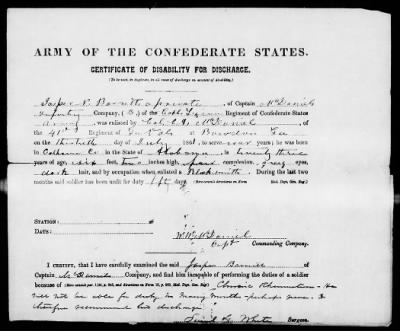 ARMY OF THE CONFEDERATE STATES.
CERTIFICATE OF DISABILITY FOR DISCHARGE.
Jasper N. Barnett a private of Captain McDaniel
Infantry Company, ( ) of Cobb Legion Regiment of Confederate States
army, was enlisted by Col. C. A. McDaniel of
the 41st Regiment of Ga Vols at Bowdon Ga
on the thirtieth day of July 1861, to serve years; he was born
in Calhoun Co in the State of Alabama is twenty three
years of age, six feet, two inches high, complexion, grey eyes,
dark hair, and by occupation when enlisted a Blacksmith. During the last two
months said soldier has been unfit for duty days.
STATION:
DATE:
W. W. McDaniel
Capt Commanding Company.
I CERTIFY, that I have carefully examined the said Jasper Barnett of
Captain McDaniels Company, and find him incapable of performing the duties of a soldier
because of Chronic Rheumatism. He
will not be able for duty in many months perhaps never. I
therefore recommend his discharge
White Surgeon.